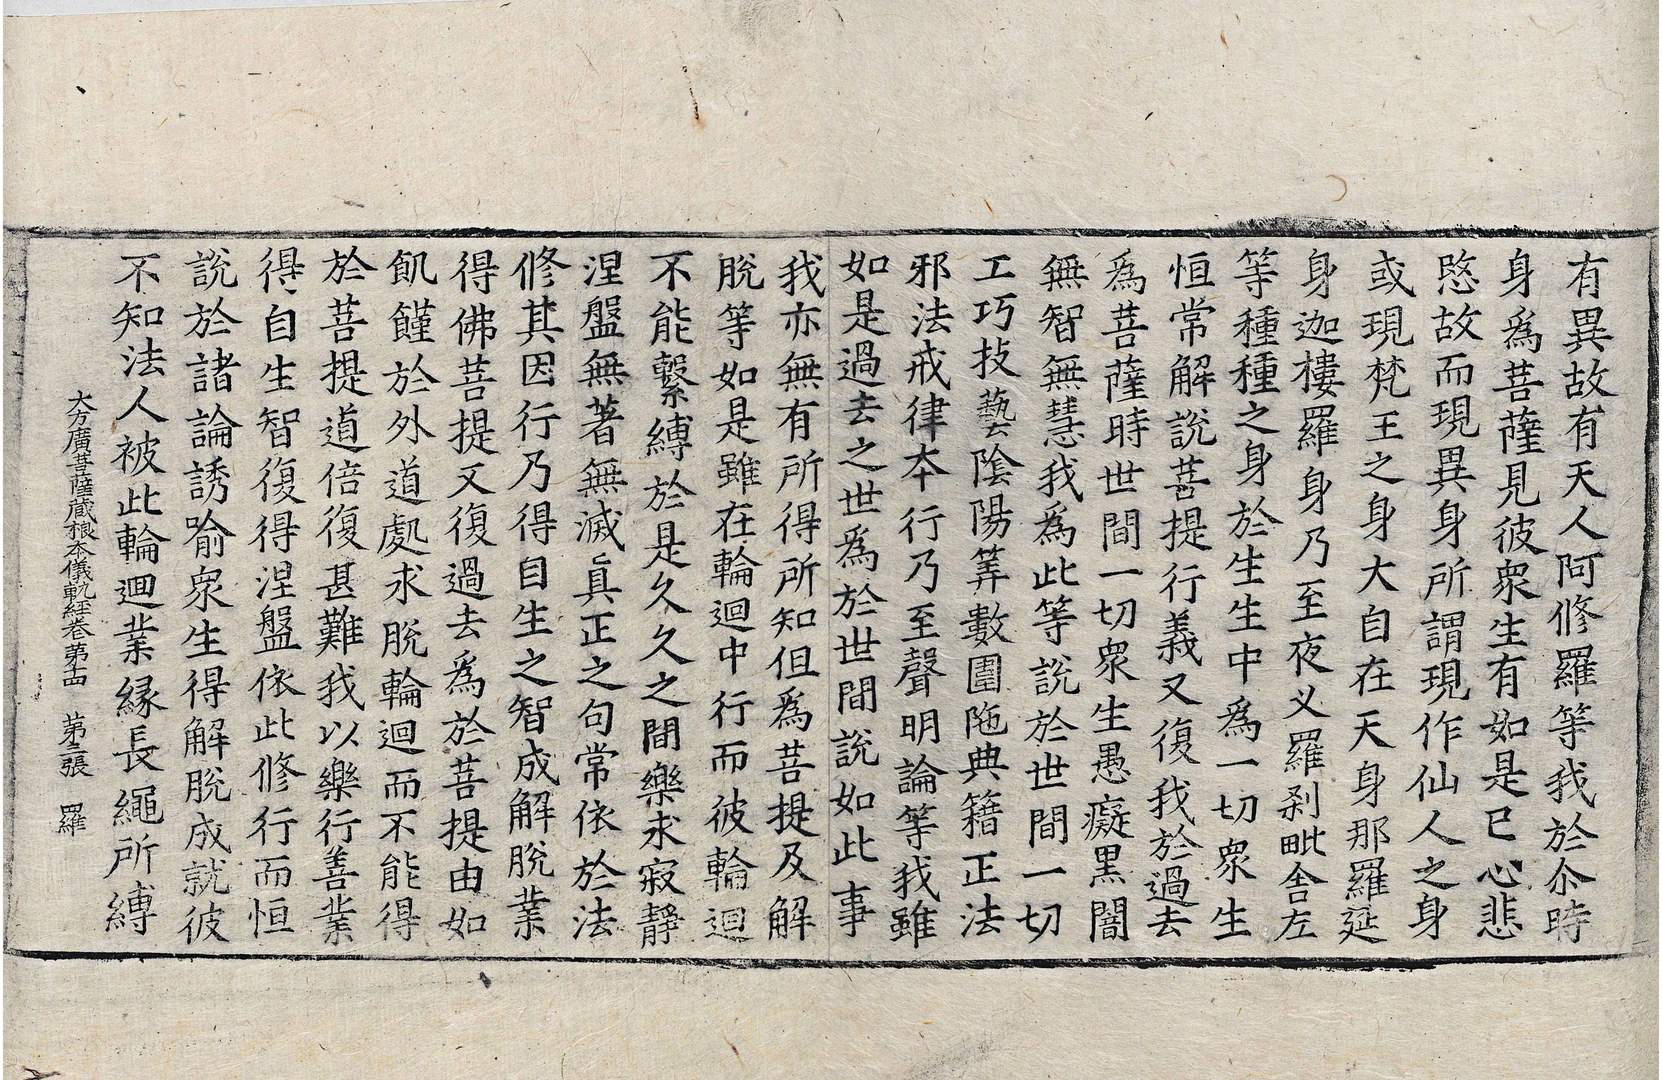 有異故有天人阿修羅等我於尒時
身爲菩薩見彼衆生有如是已心悲
愍故而現異身所謂現作仙人之身
或現梵王之身大自在天身那羅延
身迦樓羅身乃至夜义羅刹毗舎左
等種種之身於生生中爲一切衆生
恒常解說菩提行義又復我於過去
爲菩薩時世間一切衆生愚癡黑闇
無智無慧我爲此等說於世間一切
工巧技藝陰陽筭數圍陁典籍正法
邪法戒律夲行乃至聲明論等我雖
如是過去之世爲於世間說如此事
我亦無有所得所知但爲菩提及解
脫等如是雖在輪迴中行而彼輪迴
不能繫縛於是久久之間樂求寂靜
涅盤無著無滅真正之句常依於法
修其因行乃得自生之智成解脫業
得佛菩提又復過去爲於菩提由如
飢饉於外道處求脫輪迴而不能得
於菩提道倍復甚難我以樂行善業
得自生智復得涅盤依此修行而恒
說於諸論誘喻衆生得解脫成就彼
不知法人被此輪迴業縁長繩所縛
大方廣菩薩藏根本儀軌經卷第十四 第三張 羅